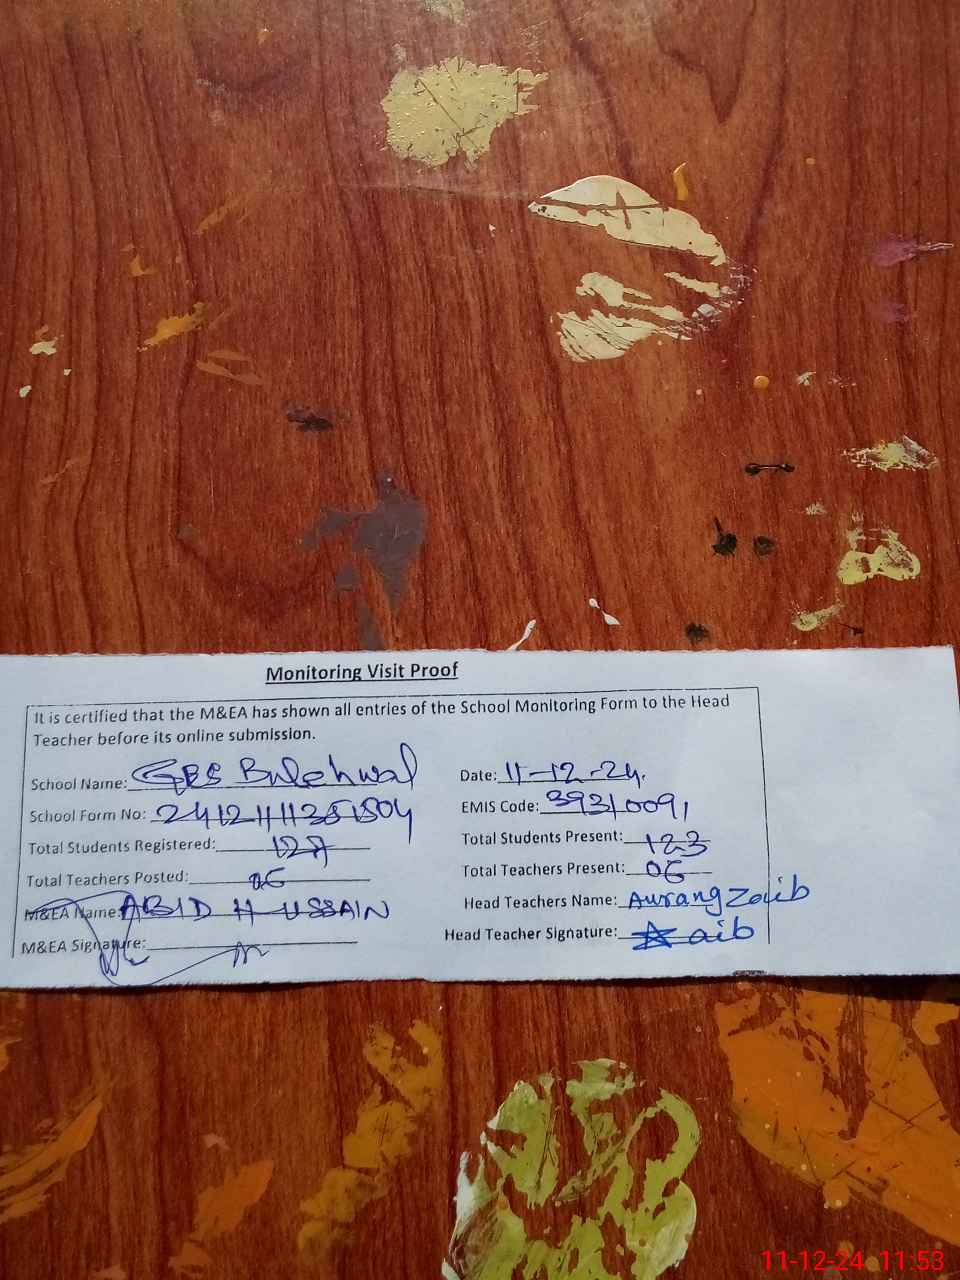 Monitoring Visit Proof
It is certified that the M&EA has shown all entries of the School Monitoring Form to the Head
Teacher before its online submission.
School Name: GES Bulehwal Date: 11-12-24.
School Form No: EMIS Code: 39310091
Total Students Registered: 127 Total Students Present: 123
Total Teachers Posted: 06 Total Teachers Present: 06
M&EA Name: ABID HUSSAIN Head Teachers Name: Aurang Zaib
M&EA Signature: Head Teacher Signature: aib
11-12-24 11:53